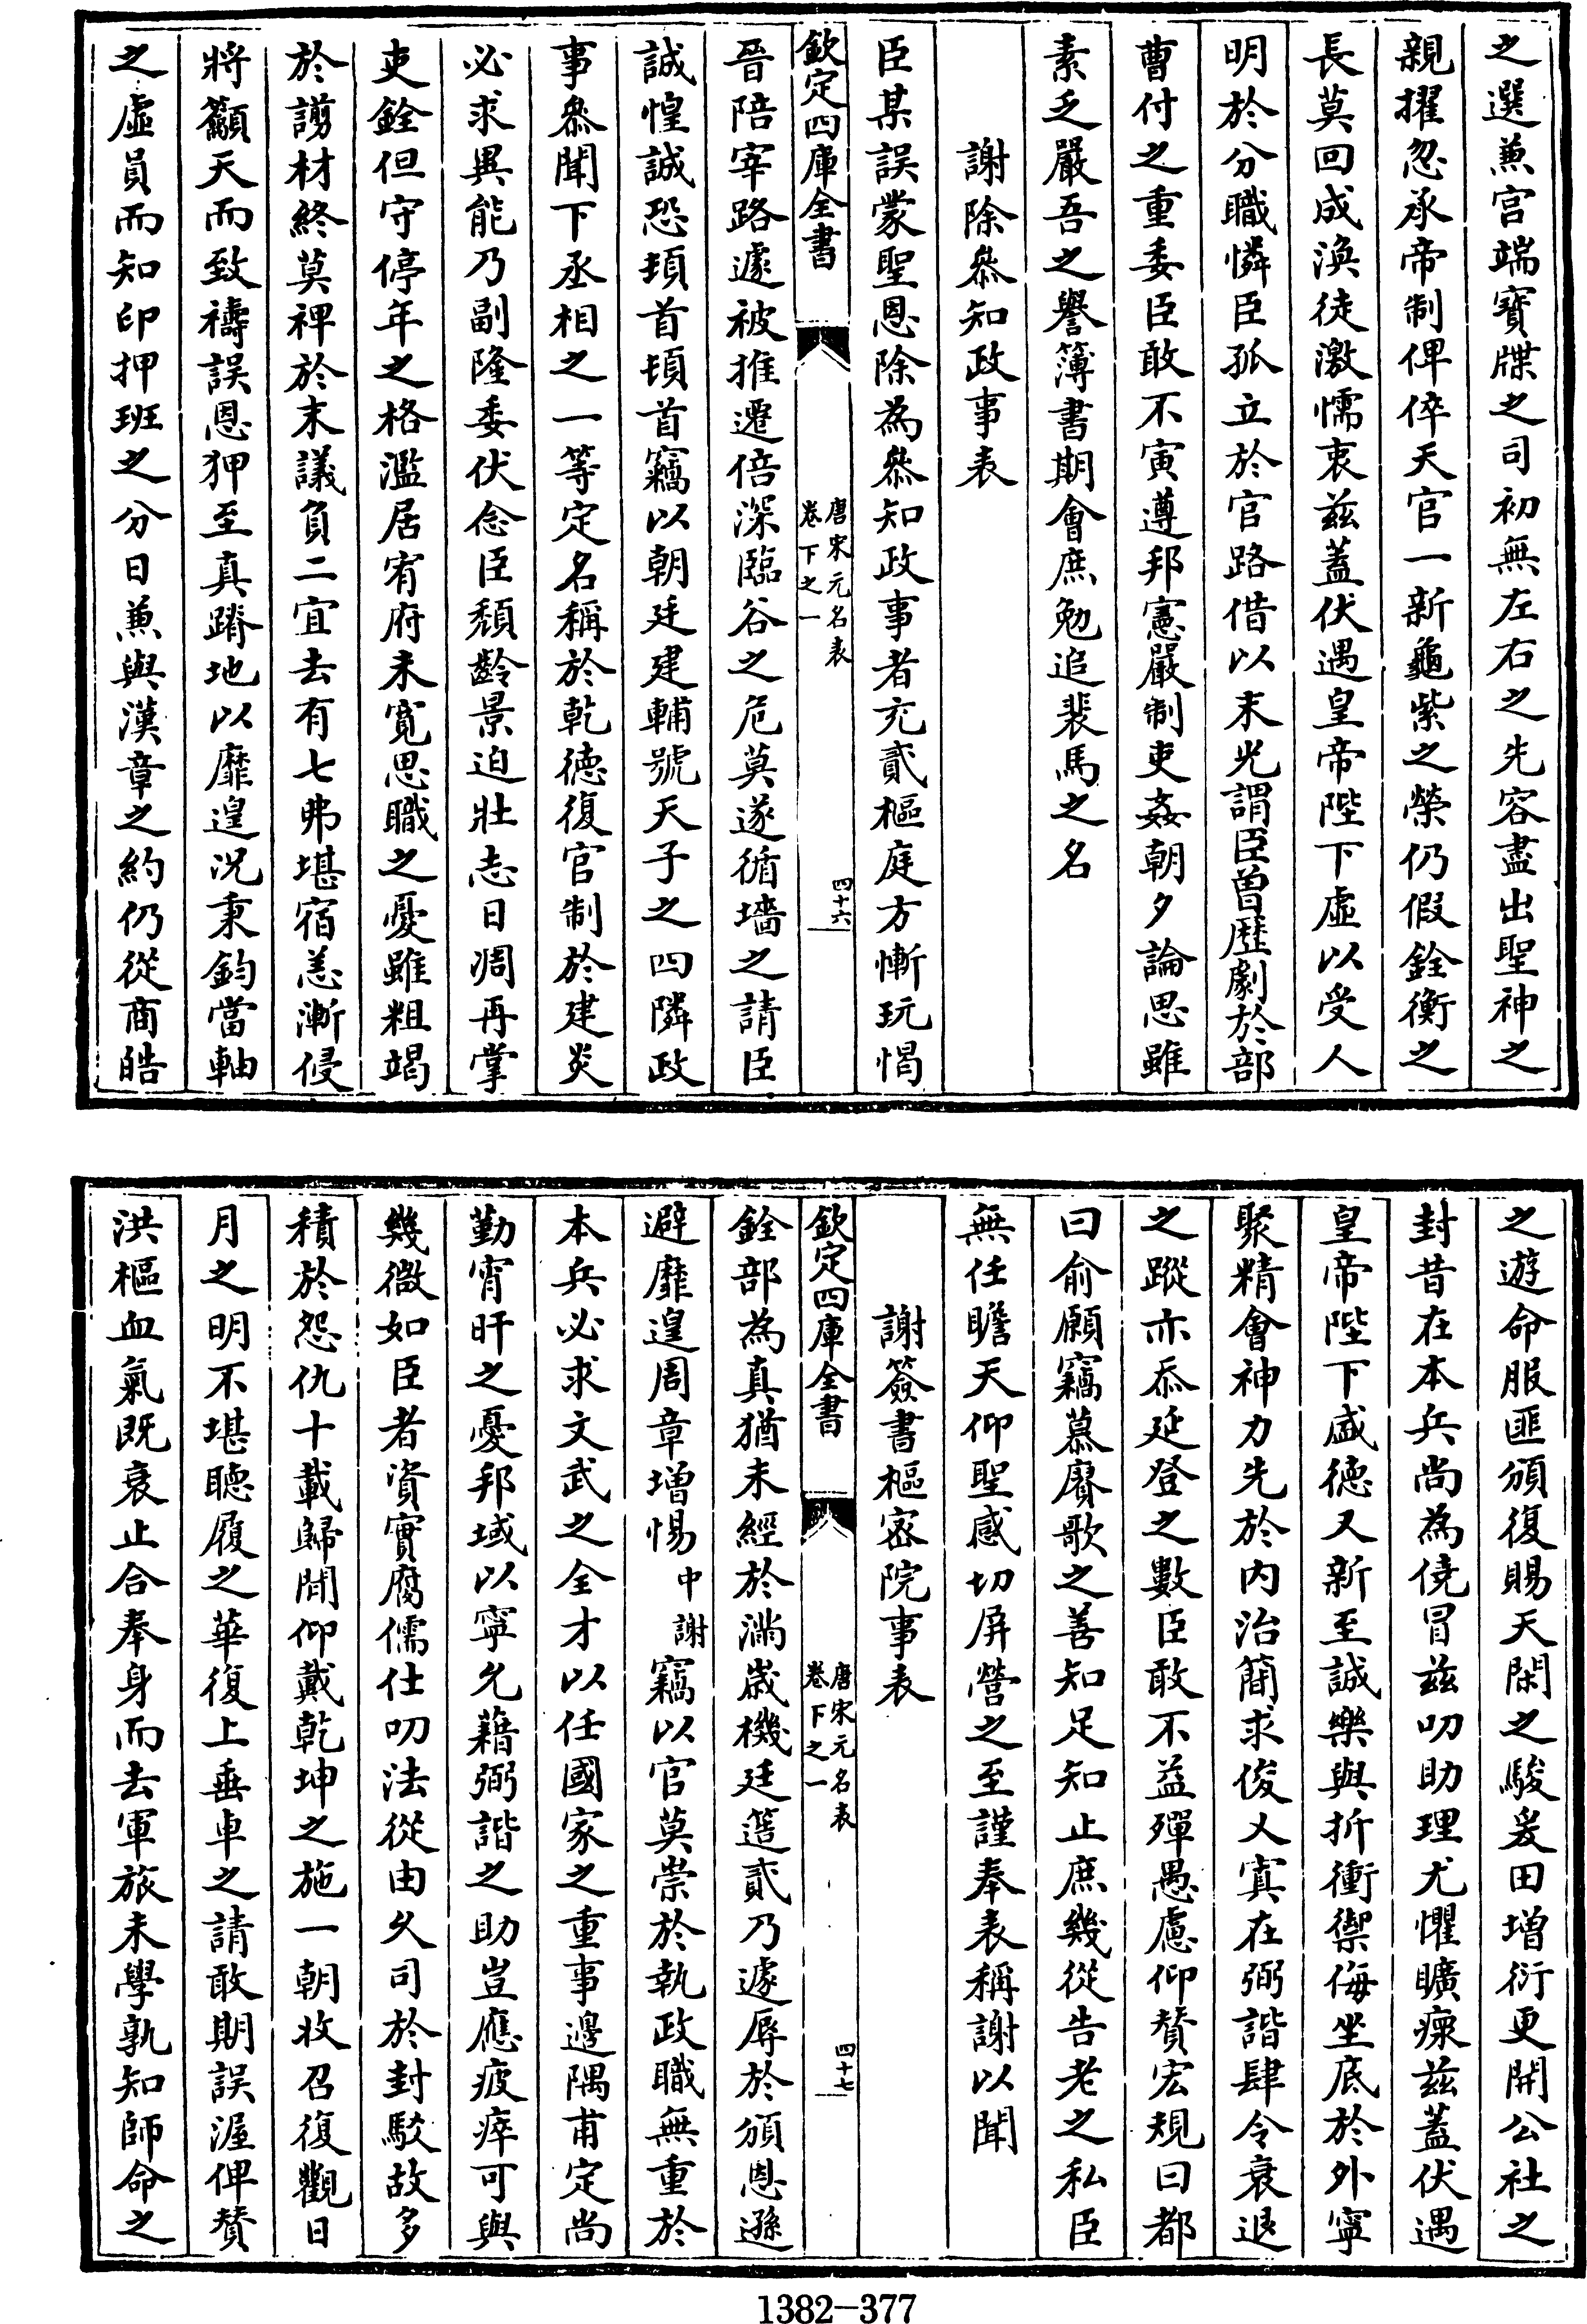 之選兼宫端寳牒之司初無左右之先容盡出聖神之
親擢忽承帝制俾倅天官一新龜紫之榮仍假銓衡之
長莫回成渙徒激懦衷兹蓋伏遇皇帝陛下虛以受人
明於分職憐臣孤立於官路借以末光謂臣曽歴劇於部
曹付之重委臣敢不寅遵邦憲嚴制吏姦朝夕論思雖
素乏嚴吾之譽簿書期會庶勉追裴馬之名
謝除叅知政事表
臣某誤蒙聖恩除為叅知政事者充貳樞庭方慚玩愒
欽定四庫全書
唐宋元名表
卷下之一
四十六
晉陪宰路遽被推遷倍深臨谷之危莫遂循墻之請臣
誠惶誠恐頓首頓首竊以朝廷建輔號天子之四隣政
事叅聞下丞相之一等定名稱於乾徳復官制於建炎
必求異能乃副隆委伏念臣頽齡景迫壯志日凋再掌
吏銓但守停年之格濫居宥府未寛思職之憂雖粗竭
於謭材終莫裨於末議負二宜去有七弗堪宿恙漸侵
將籲天而致禱誤恩狎至真蹐地以靡遑况秉鈞當軸
之虛員而知印押班之分日兼與漢章之約仍從商皓
之遊命服匪頒復賜天閑之駿爰田增衍更開公社之
封昔在本兵尚為僥冒兹叨助理尤懼曠瘝兹蓋伏遇
皇帝陛下盛徳又新至誠樂與折衝禦侮坐底於外寧
聚精會神力先於内治簡求俊乂寘在弼諧肆令衰退
之蹤亦忝延登之數臣敢不益殫愚慮仰賛宏規曰都
曰俞願竊慕賡歌之善知足知止庶幾從告老之私臣
無任瞻天仰聖感切屏營之至謹奉表稱謝以聞
謝簽書樞宻院事表
欽定四庫全書
唐宋元名表
卷下之一
四十七
銓部為真猶未經於滿歲機廷簉貳乃遽辱於頒恩遜
避靡遑周章增惕中謝竊以官莫崇於執政職無重於
本兵必求文武之全才以任國家之重事邊隅甫定尚
勤宵旰之憂邦域以寧允藉弼諧之助豈應疲瘁可與
幾微如臣者資實腐儒仕叨法從由久司於封駮故多
積於怨仇十載歸閒仰戴乾坤之施一朝收召復觀日
月之明不堪聽履之華復上垂車之請敢期誤渥俾賛
洪樞血氣既衰止合奉身而去軍旅未學孰知師命之
1382-377